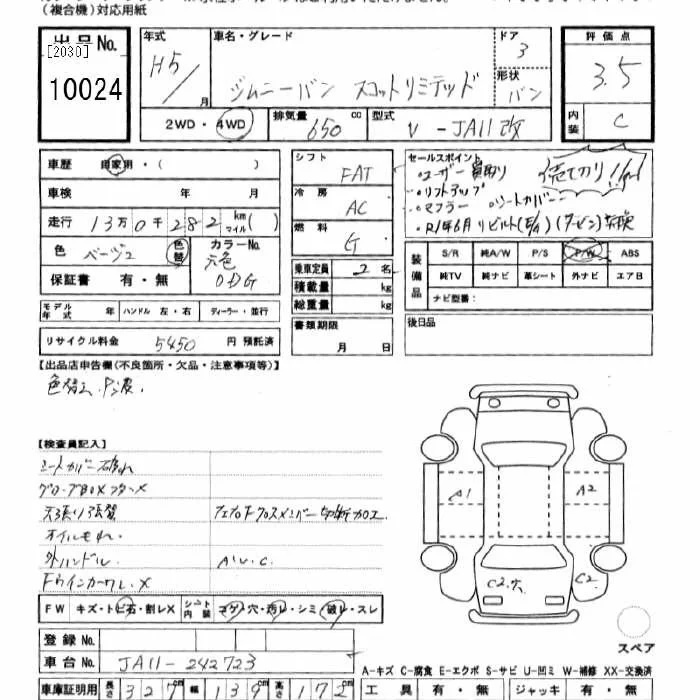 （複合機）対応用紙
出品No.
[2030]
10024
年式 H5 / 月
車名・グレード ジムニーバン スコットリミテッド
ドア 3
形状 バン
2WD・4WD
排気量 650 cc
型式 V-JA11改
評価点 3.5
内装 C
車歴 自家用・（ ）
車検 年 月
走行 13万0千282 km マイル( )
色 ベージュ 色替
カラーNo. 元色 0DG
保証書 有・無
シフト FAT
冷房 AC
燃料 G
乗車定員 2名
積載量 kg
総重量 kg
書類期限 月 日
セールスポイント
・ユーザー買取り 売切り!!
・リフトアップ
・マフラー ・シートカバー
・R1年6月リビルト(E/g)(タービン)交換
装備品
S/R 純A/W P/S P/W ABS
純TV 純ナビ 革シート 外ナビ エアB
ナビ型番：
後日品
モデル年式 年 ハンドル 左・右 ディーラー・並行
リサイクル料金 5450 円 預託済
【出品店申告欄(不良箇所・欠品・注意事項等)】
色替え.
【検査員記入】
シートカバー破れ
グローブBOXフタ×
天張り張替 左右下クロスメンバー切断加工
オイルもれ.
外ハンドル. A.U.C.
Fウインカーワレ.×
A1 A2
C2.穴 C2
FW キズ・トビ石・割レX
シート内装 コゲ・穴・汚レ・シミ・破レ・スレ
スペア
登録No.
車台No. JA11-242723
A-キズ C-腐食 E-エクボ S-サビ U-凹ミ W-補修 XX-交換済
車庫証明用 長さ 327cm 幅 139cm 高さ 172cm
工具 有・無 ジャッキ 有・無